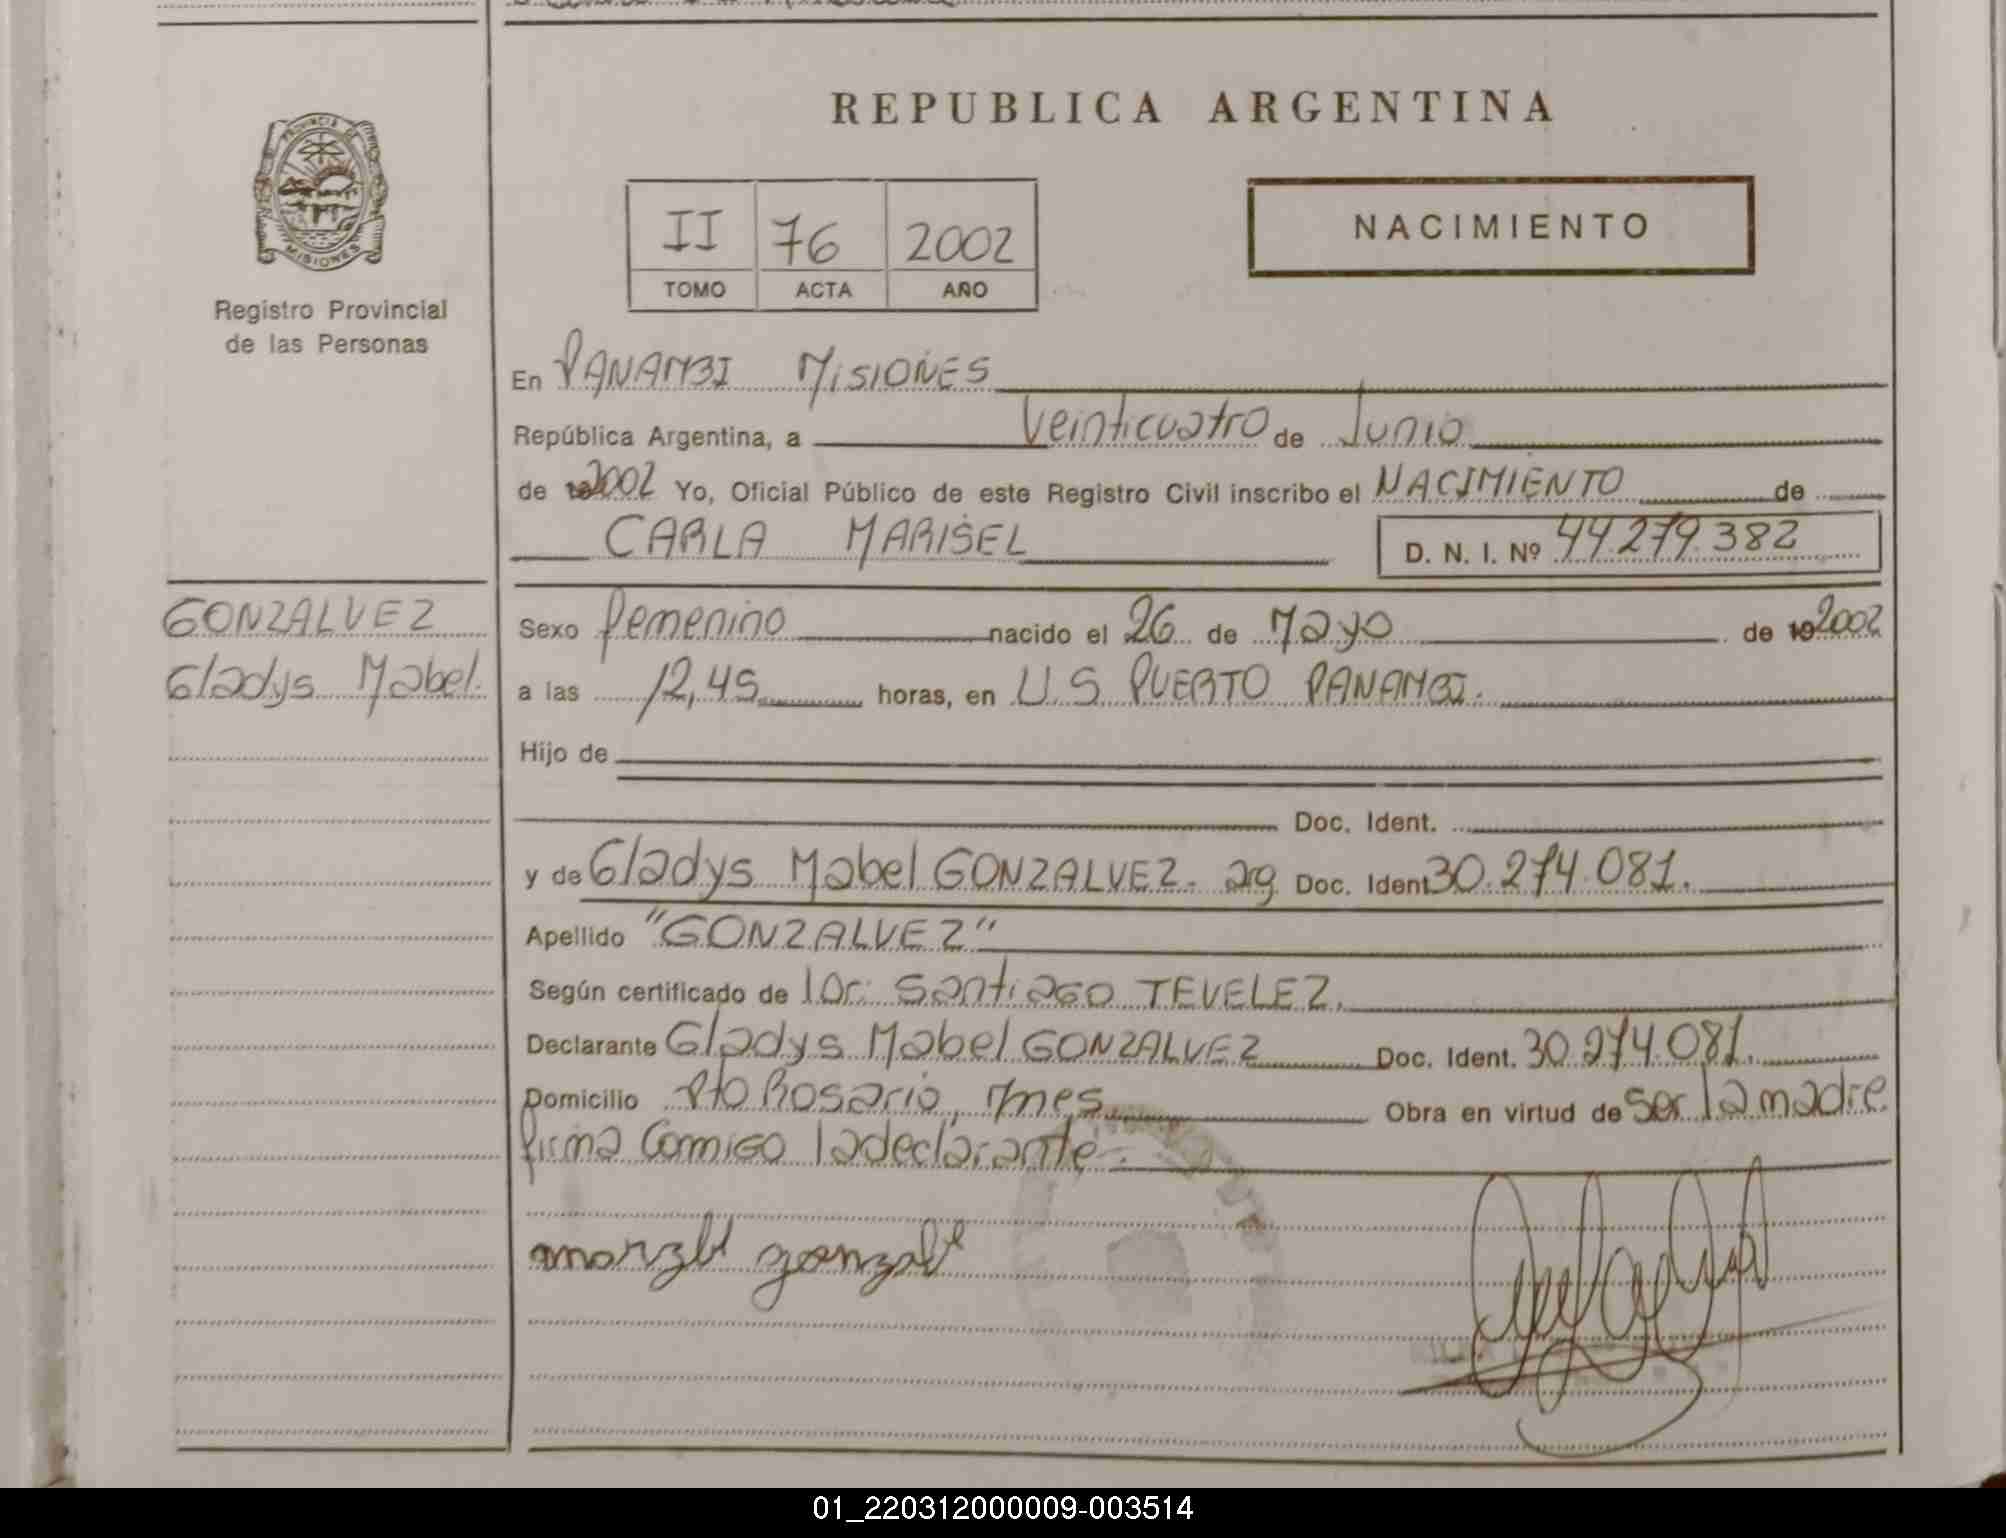 REPUBLICA ARGENTINA
PROVINCIA DE
MISIONES
Registro Provincial
de las Personas
II 76 2002
TOMO ACTA AÑO
NACIMIENTO
En PANAMBI MISIONES
República Argentina, a Veinticuatro de Junio
de 2002 Yo, Oficial Público de este Registro Civil inscribo el NACIMIENTO de
CARLA MARISEL
D. N. I. Nº 44.279.382
GONZALVEZ
Gladys Mabel.
Sexo femenino nacido el 26 de Mayo de 19 2002
a las 12,45 horas, en U.S. PUERTO PANAMBI.
Hijo de
Doc. Ident.
y de Gladys Mabel GONZALVEZ. arg Doc. Ident 30.274.081.
Apellido "GONZALVEZ"
Según certificado de Dr: Santiago TEVELEZ.
Declarante Gladys Mabel GONZALVEZ Doc. Ident. 30.274.081.
Domicilio Pto Rosario, Mnes. Obra en virtud de ser la madre
firma Comigo la declarante.
01_220312000009-003514